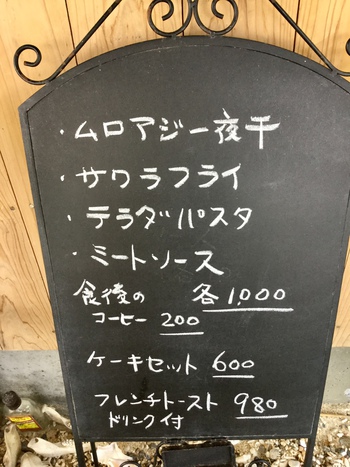 ・ムロアジ一夜干
・サワラフライ
・テラダパスタ
・ミートソース
各1,000
食後の
コーヒー 200
ケーキセット 600
フレンチトースト 980
ドリンク付